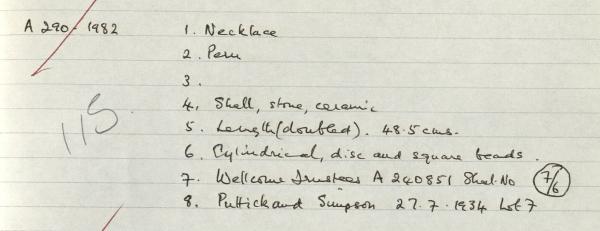 A 290. 1982 1. Necklace
2. Peru
3.
4. Shell, stone, ceramic
5. Length (doubled). 48.5 cms.
6. Cylindrical, disc and square beads.
7. Wellcome Trustees A 240851 Shel. No 7/6
115.
8. Puttick and Simpson 27.7.1934 Lot 7